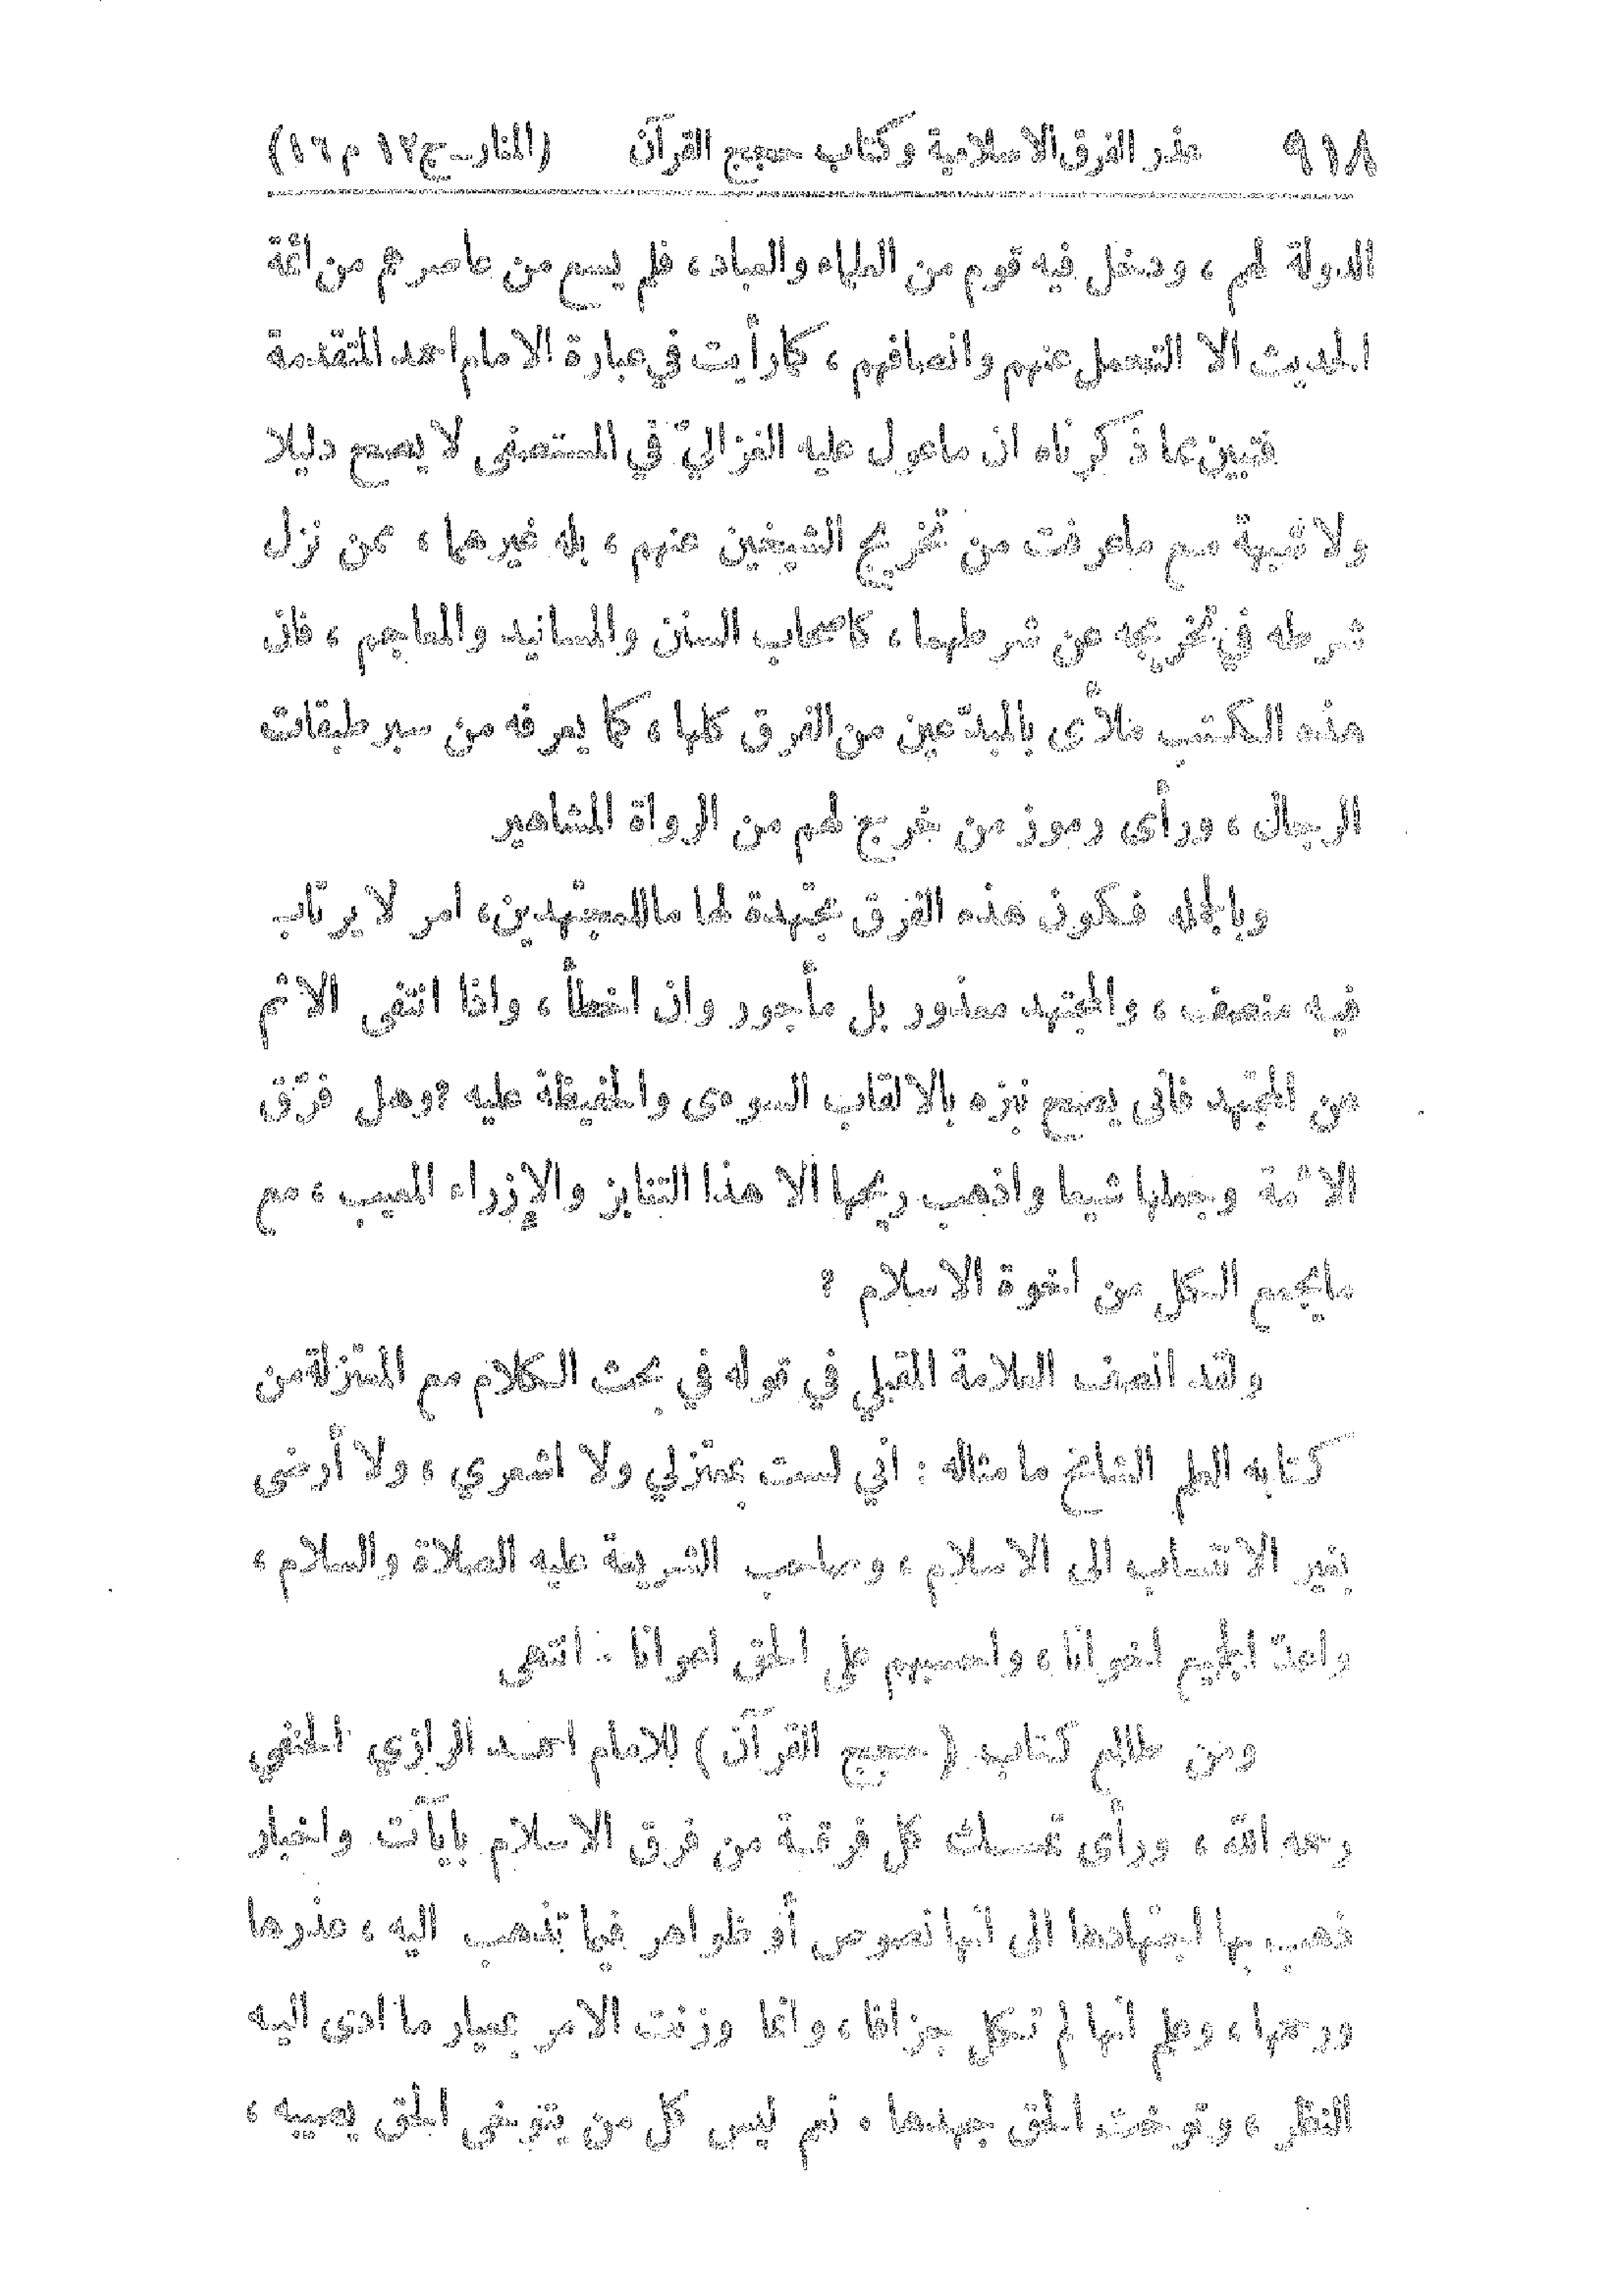 ٩١٨ عذر الفرق الاسلامية وكتاب حجج القرآن (المنار ـ ج ١٢ م ١٦)
الدولة لهم ، ودخل فيه قوم من العلماء والعباد ، فلم يسع من عاصرهم من ائمة
الحديث الا التحمل عنهم وانصافهم ، كما رأيت في عبارة الامام احمد المتقدمة
فتبين بما ذكرناه ان ماعول عليه الغزاليّ في المستصفى لا يصح دليلا
ولا شبهة مع ماعرفت من تخريج الشيخين عنهم ، بله غيرهما ، ممن نزل
شرطه في تخريجه عن شرطهما ، كاصحاب السنن والمسانيد والمعاجم ، فان
هذه الكتب ملأى بالمبدّعين من الفرق كلها ، كما يعرفه من سبر طبقات
الرجال ، ورأى رموز من خرج لهم من الرواة المشاهير
وبالجملة فكون هذه الفرق مجتهدة لها ماللمجتهدين، امر لا يرتاب
فيه منصف ، والمجتهد معذور بل مأجور وان اخطأ ، واذا انتفى الاثم
عن المجتهد فانى يصح نبزه بالالقاب السوءى والحفيظة عليه ؟ وهل فرّق
الائمة وجعلها شيعا واذهب ريحها الا هذا التنابز والإزراء المعيب ، مع
مايجمع الكل من اخوة الاسلام ؟
ولقد انصف العلامة المقبلي في قوله في بحث الكلام مع المعتزلة من
كتابه العلم الشامخ ما مثاله : اني لست بمعتزلي ولا اشعري ، ولا أرضى
بغير الانتساب الى الاسلام ، وصاحب الشريعة عليه الصلاة والسلام ،
واعدّ الجميع اخوانا ، واحسبهم على الحق اعوانا . انتهى
ومن طالع كتاب (حجج القرآن) للامام احمد الرازي الحنفي
رحمه الله ، ورأى تمسك كل فرقة من فرق الاسلام بآيات واخبار
ذهب بها اجتهادها الى انها نصوص أو ظواهر فيما تذهب اليه ، عذرها
ورحمها ، وعلم انها لم تتكل جزافا ، وانما وزنت الامر بمعيار ما ادى اليه
النظر ، وتوخت الحق جهدها . نعم ليس كل من يتوخى الحق يصيبه ،